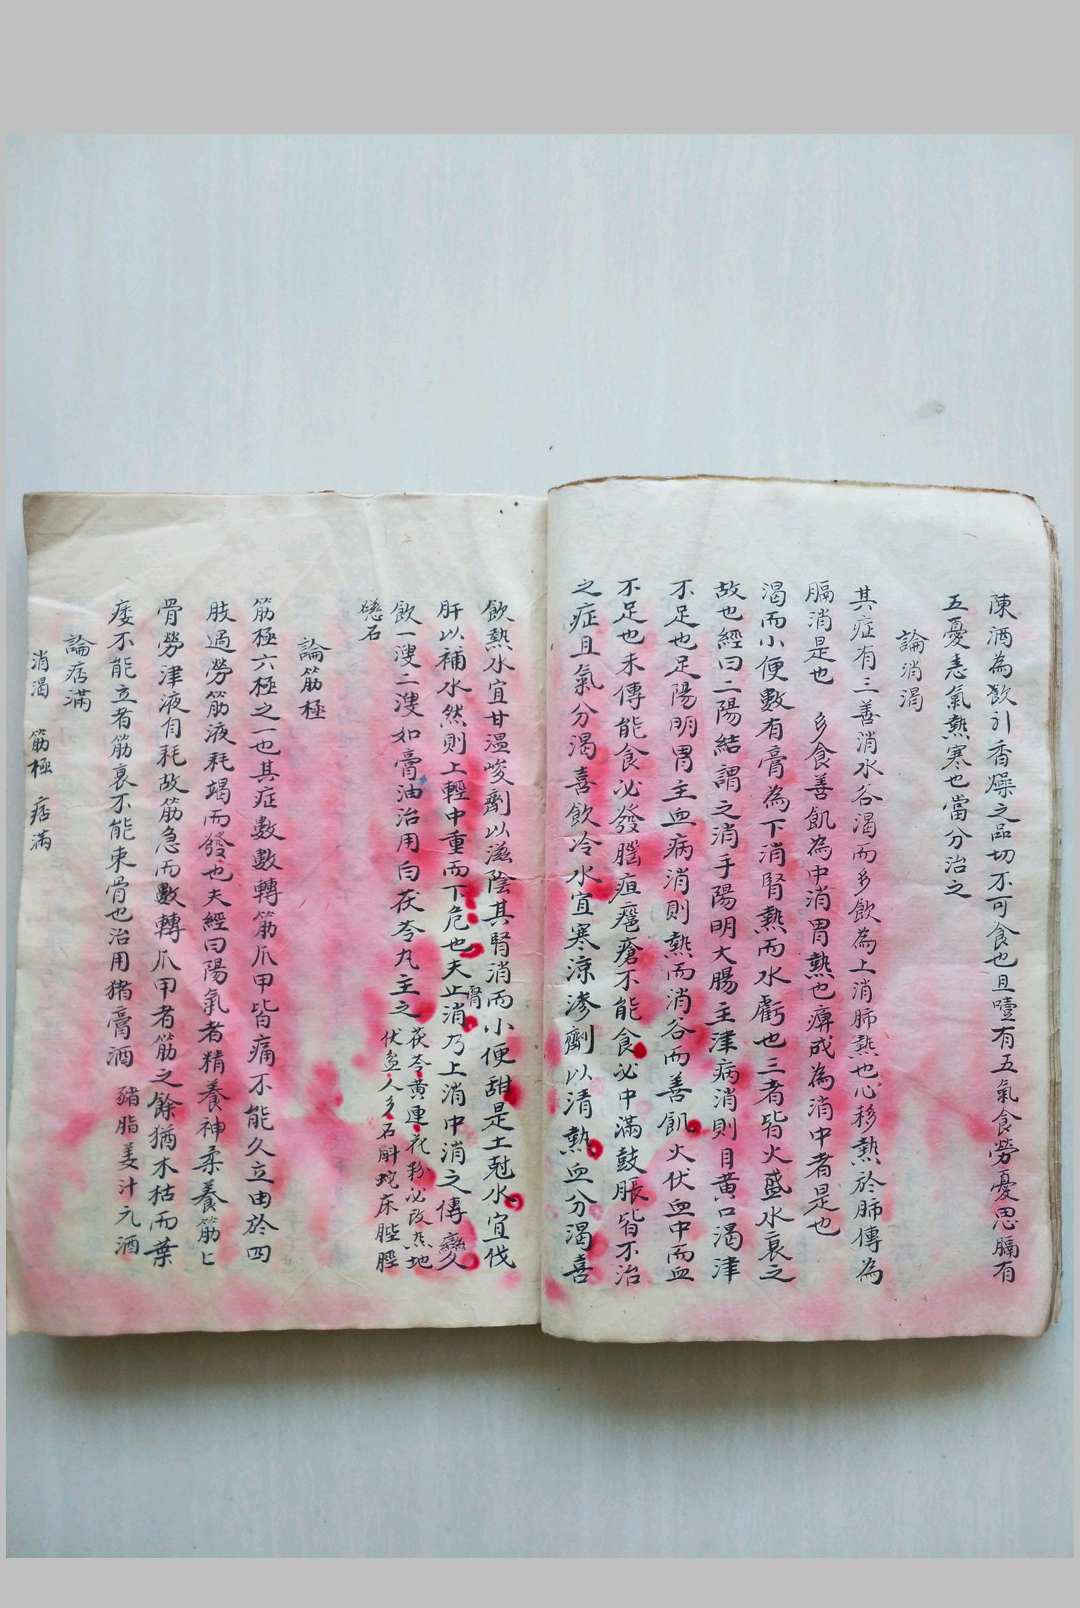 陳酒為歡引香燥之品切不可食也且噎有五氣食勞憂思膈有
五憂恚氣熱寒也當分治之
論消渴
其症有三善消水谷渴而多飲為上消肺熱也心移熱於肺傳為
膈消是也 多食善飢為中消胃熱也癉成為消中者是也
渴而小便數有膏為下消腎熱而水虧也三者皆火盛水衰之
故也經曰二陽結謂之消手陽明大腸主津病消則目黃口渴津
不足也足陽明胃主血病消則熱而消谷而善飢火伏血中而血
不足也未傳能食必發腦疽瘡不能食必中滿鼓脹皆不治
之症且氣分渴喜飲冷水宜寒涼滲劑以清熱血分渴喜
飲熱水宜甘溫峻劑以滋陰其腎消而小便甜是土尅水宜伐
肝以補水然則上輕中重而下危也夫上消腎消乃上消中消之傳變
飲一溲二溲如膏油治用白茯苓丸主之 茯苓黃連花粉必改熟地
伏盆人多石斛蛇床膍脛
磁石
論筋極
筋極六極之一也其症數數轉筋爪甲皆痛不能久立由於四
肢過勞筋液耗竭而發也夫經曰陽氣者精養神柔養筋匕
骨勞津液自耗故筋急而數轉爪甲者筋之餘猶木枯而葉
痿不能立者筋衰不能束骨也治用豬膏酒 豬脂姜汁元酒
論痞滿
消渴 筋極 痞滿